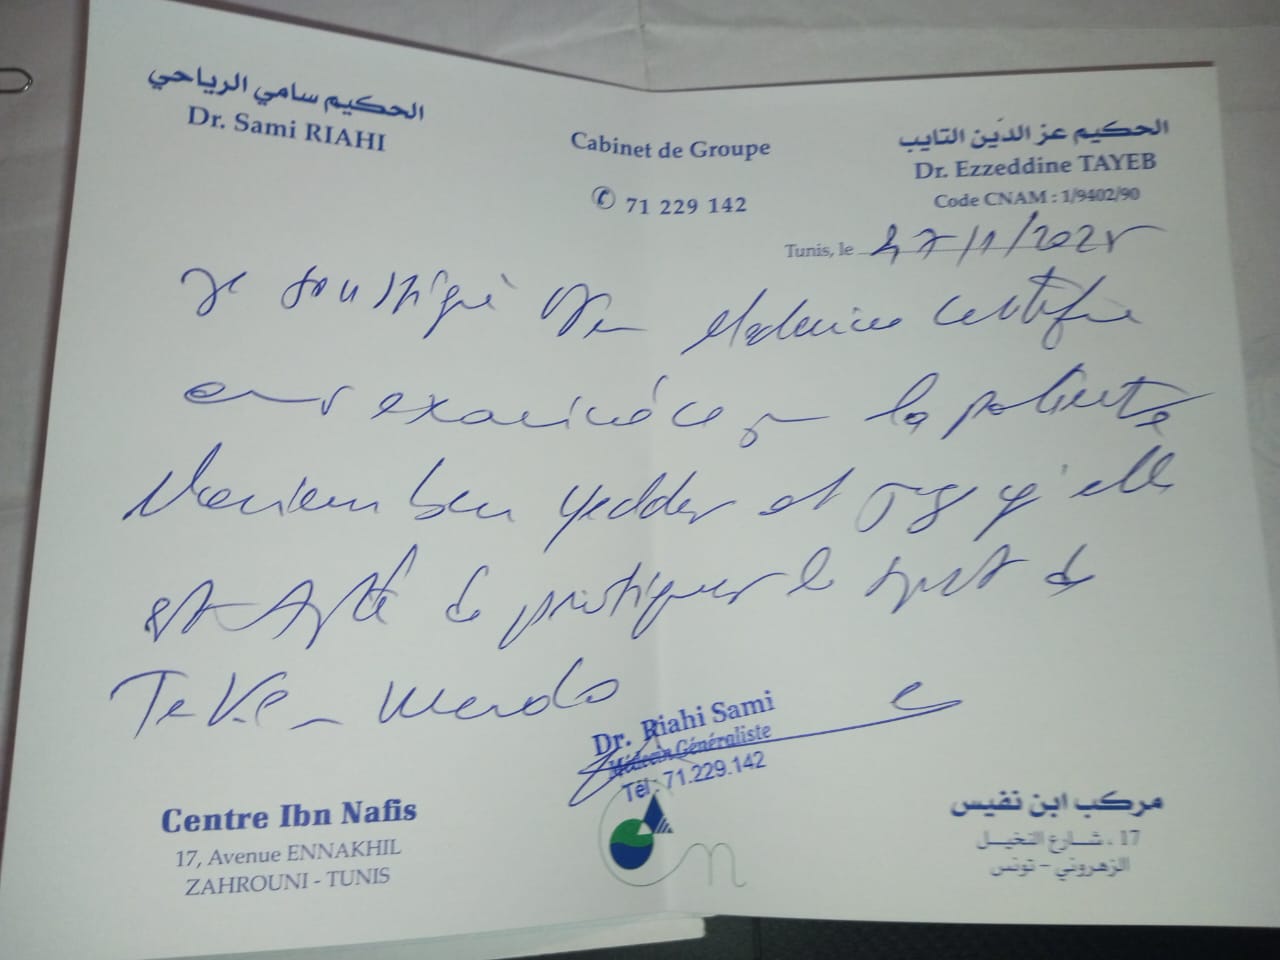 الحكيم سامي الرياحي
Dr. Sami RIAHI
Cabinet de Groupe
✆ 71 229 142
الحكيم عز الدّين التايب
Dr. Ezzeddine TAYEB
Code CNAM : 1/9402/90
Tunis, le
Je soussigné Dr en Médecine certifie
avoir examiné ce jour la patiente
Meriem ben yedder et qu'elle
est apte de pratiquer le sport de
Tekwendo
Dr. Riahi Sami
Médecin Généraliste
Tél : 71.229.142
Centre Ibn Nafis
17, Avenue ENNAKHIL
ZAHROUNI - TUNIS
مركب ابن نفيس
17 ، شارع النخيل
الزهروني - تونس